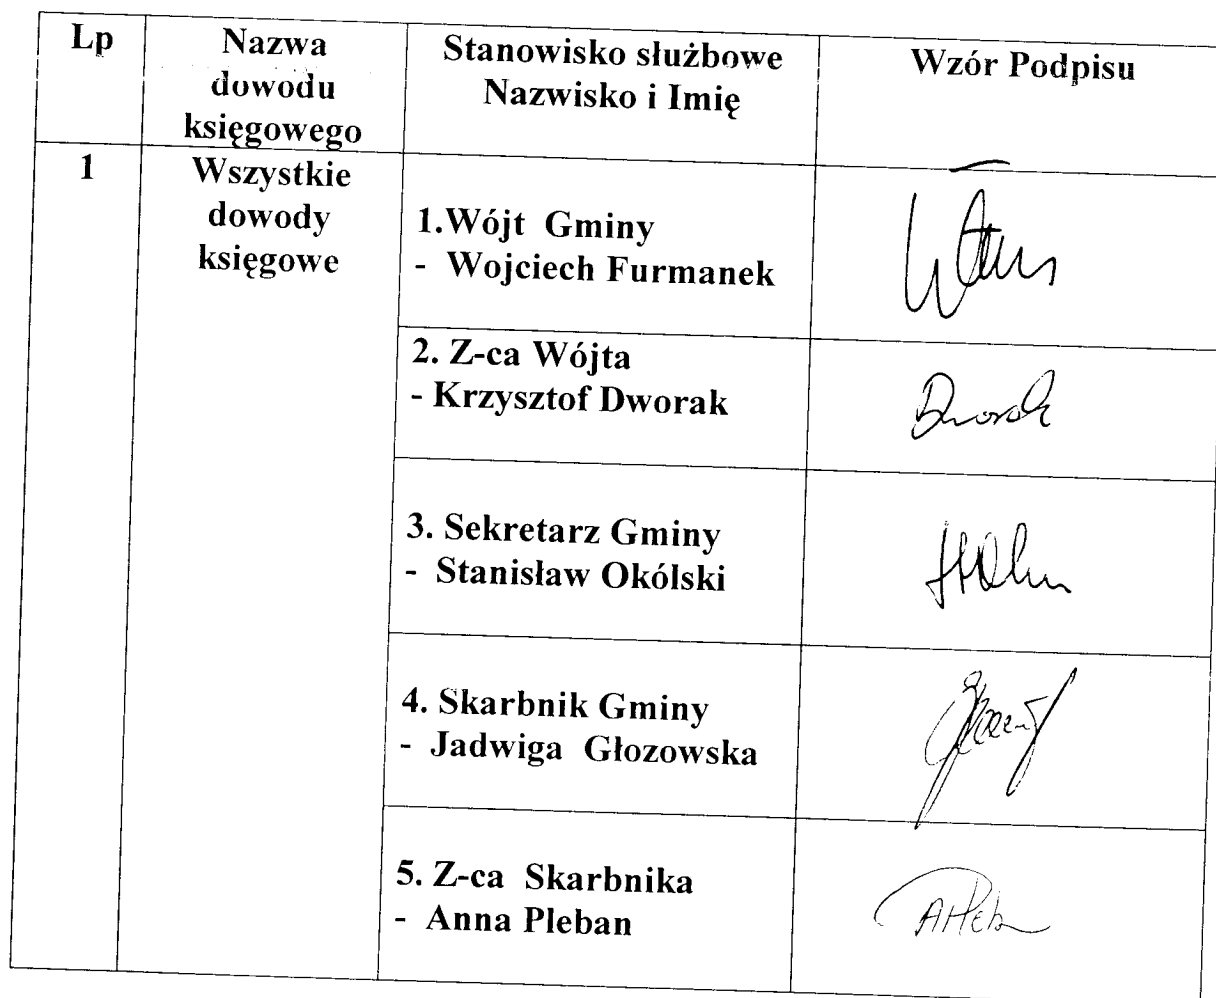 Lp
Nazwa
dowodu
księgowego
Stanowisko służbowe
Nazwisko i Imię
Wzór Podpisu
1
Wszystkie
dowody
księgowe
1.Wójt Gminy
- Wojciech Furmanek
2. Z-ca Wójta
- Krzysztof Dworak
Dworak
3. Sekretarz Gminy
- Stanisław Okólski
4. Skarbnik Gminy
- Jadwiga Głozowska
5. Z-ca Skarbnika
- Anna Pleban